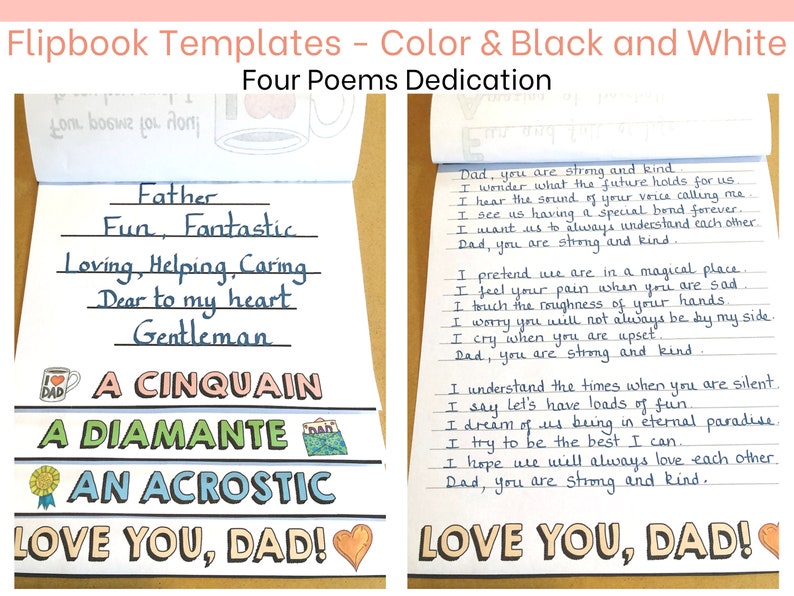 Flipbook Templates - Color & Black and White
Four Poems Dedication
Four poems for you!
Father
Fun, Fantastic
Loving, Helping, Caring
Dear to my heart
Gentleman
I ♥ DAD
A CINQUAIN
A DIAMANTE
DAD
AN ACROSTIC
LOVE YOU, DAD!
Fun and full of life
Dad, you are strong and kind.
I wonder what the future holds for us.
I hear the sound of your voice calling me.
I see us having a special bond forever.
I want us to always understand each other.
Dad, you are strong and kind.
I pretend we are in a magical place.
I feel your pain when you are sad.
I touch the roughness of your hands.
I worry you will not always be by my side.
I cry when you are upset.
Dad, you are strong and kind.
I understand the times when you are silent.
I say let's have loads of fun.
I dream of us being in eternal paradise.
I try to be the best I can.
I hope we will always love each other.
Dad, you are strong and kind.
LOVE YOU, DAD!